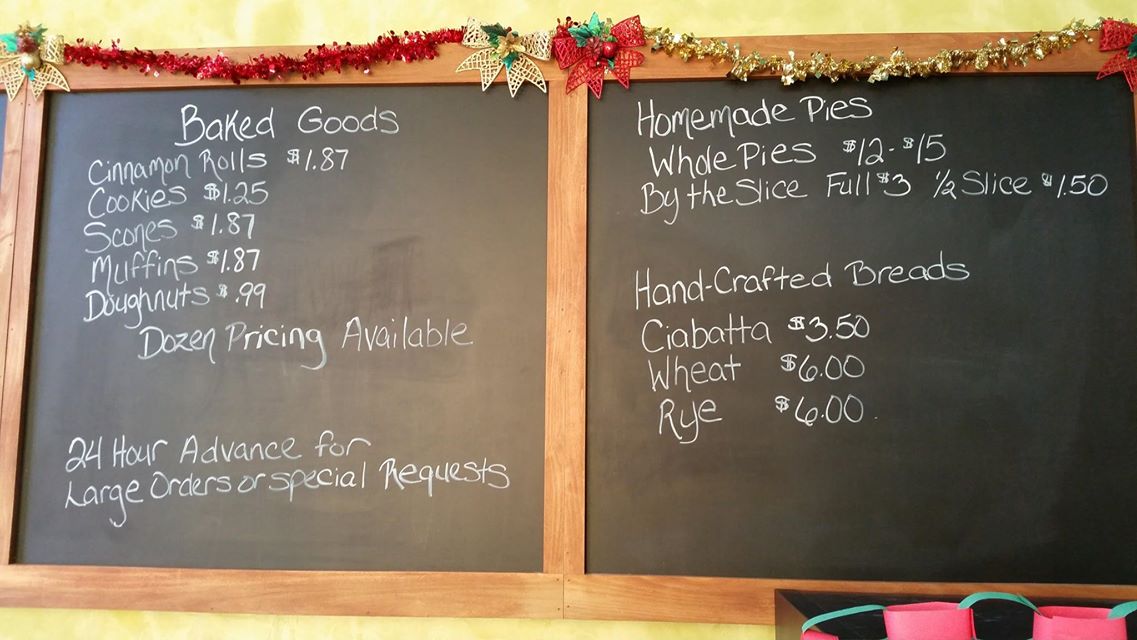 Baked Goods
Cinnamon Rolls $1.87
Cookies $1.25
Scones $1.87
Muffins $1.87
Doughnuts $.99
Dozen Pricing Available
24 Hour Advance for
Large Orders or special Requests
Homemade Pies
Whole Pies $12-$15
By the Slice Full $3 1/2 Slice $1.50
Hand-Crafted Breads
Ciabatta $3.50
Wheat $6.00
Rye $6.00